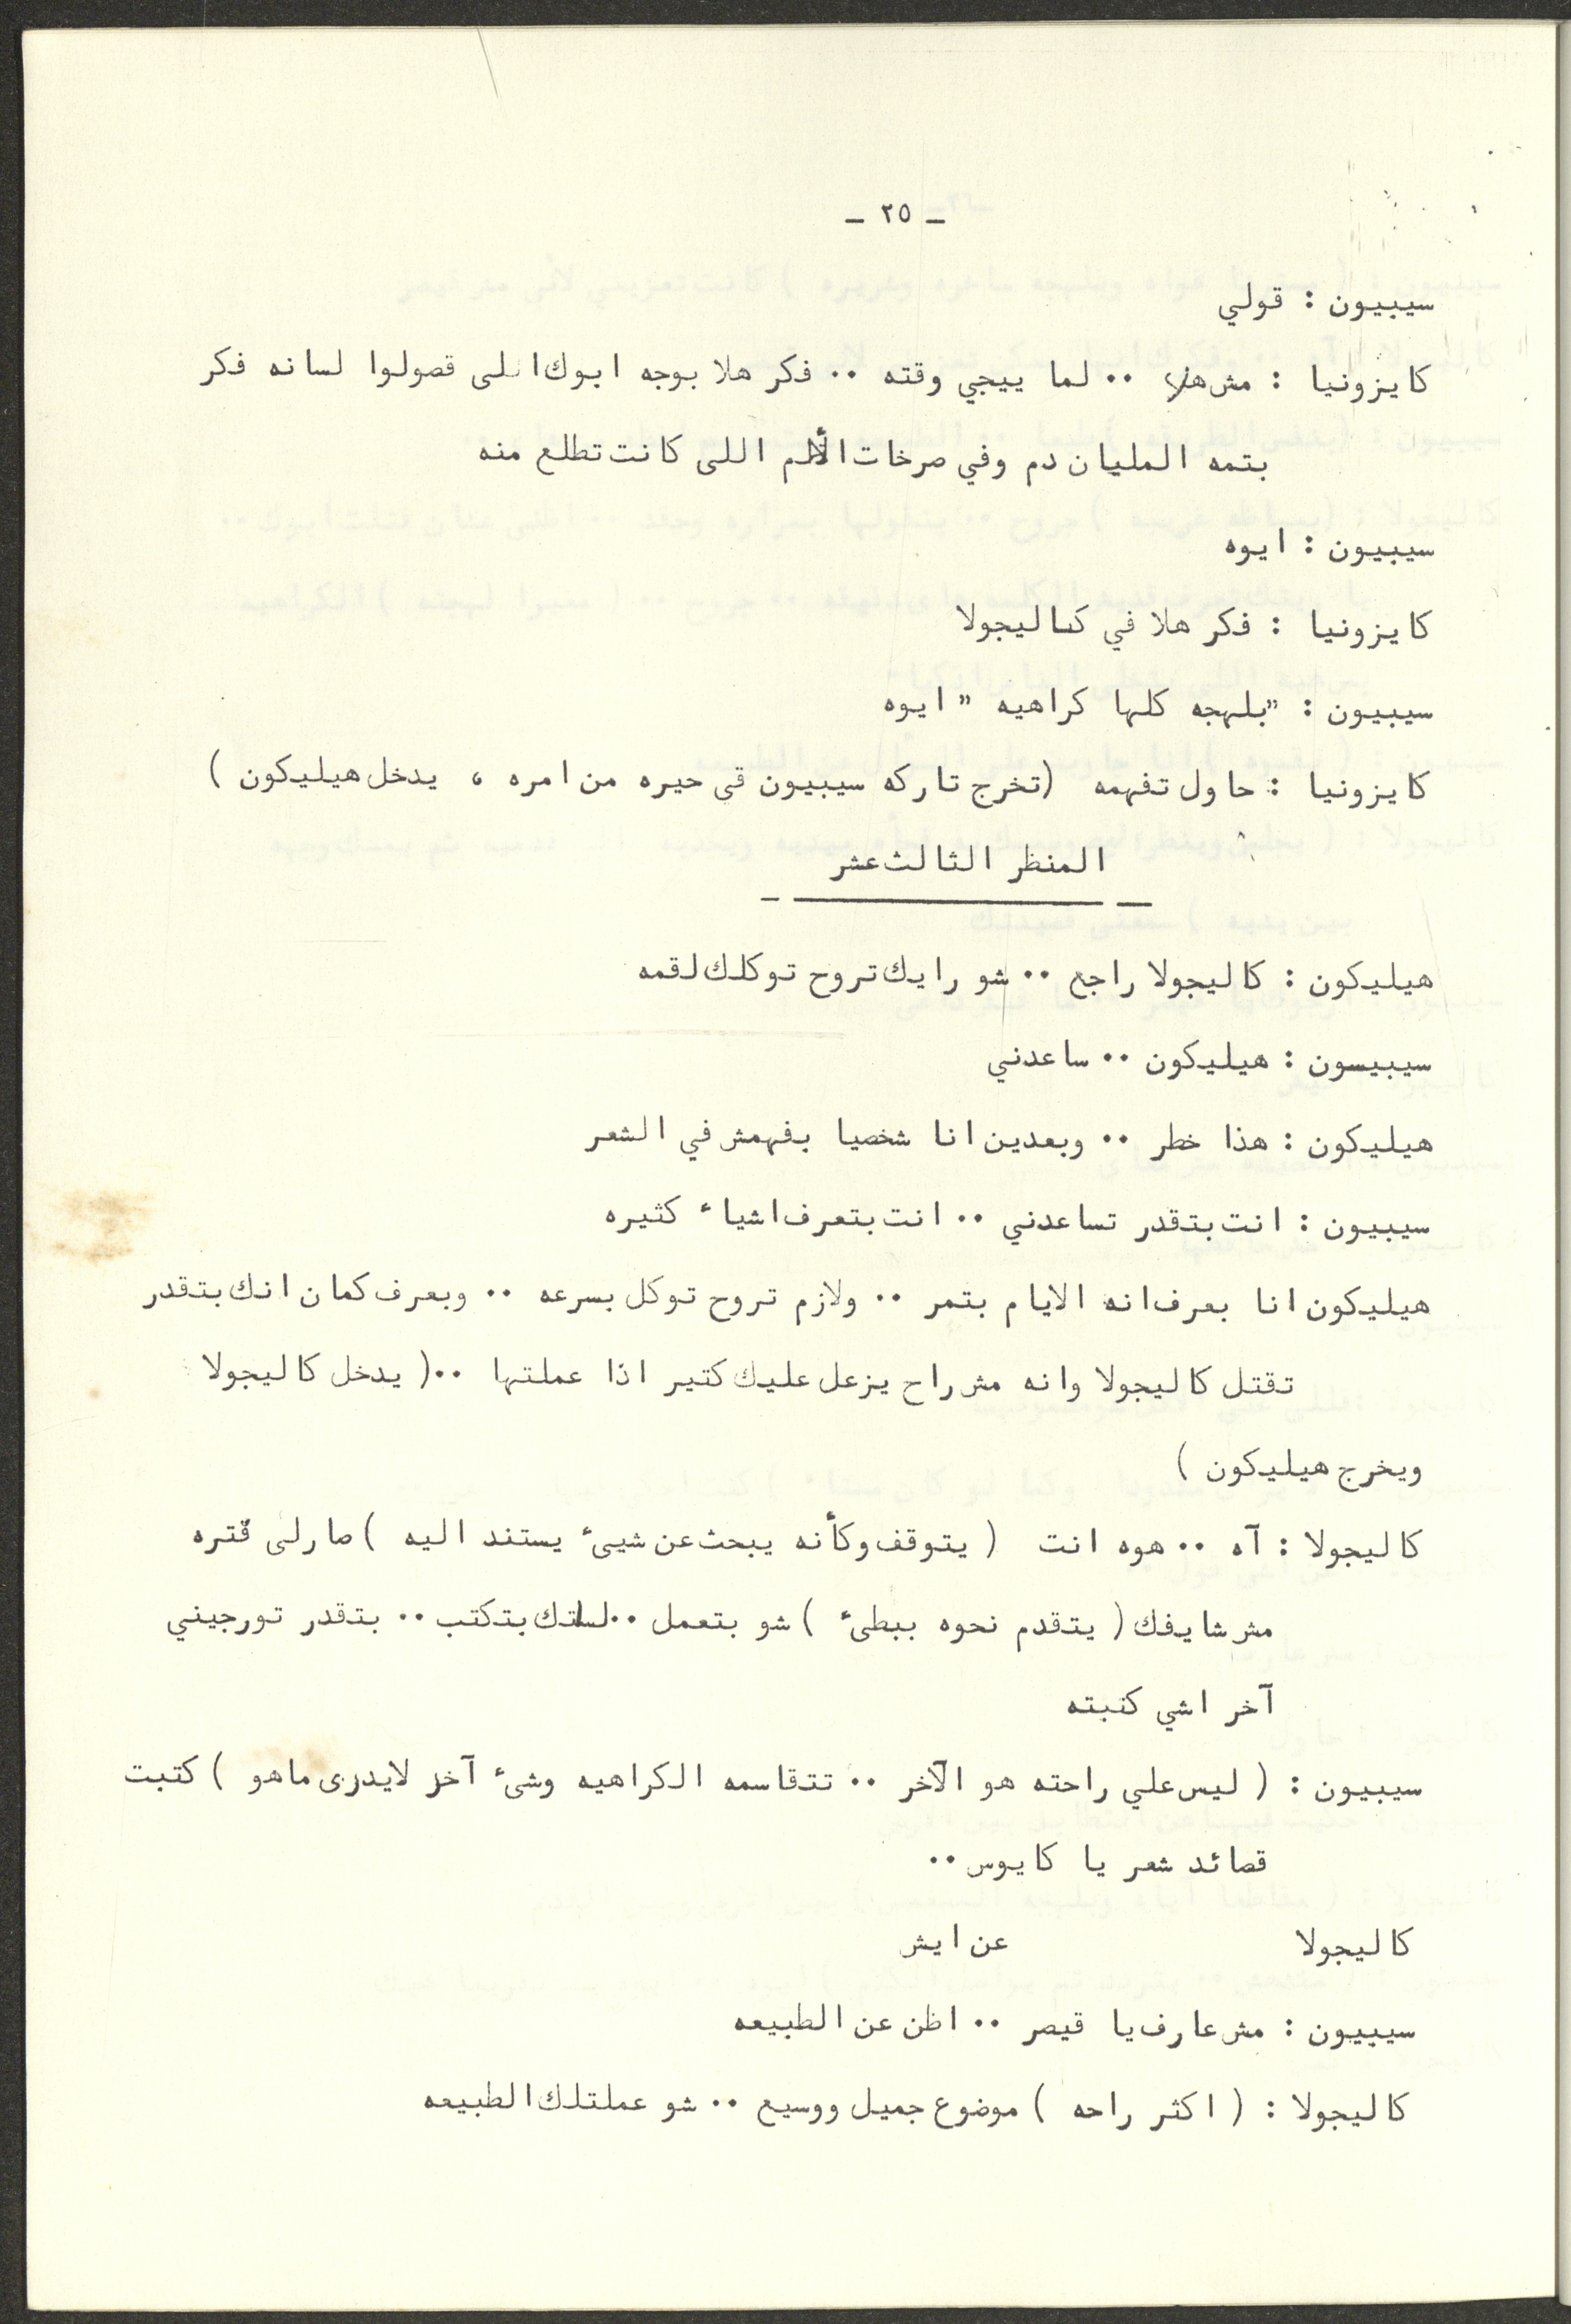 - ٢٥ -
سيبيون : قولي
كايزونيا : مش هلا ٠٠ لما ييجي وقته ٠٠ فكر هلا بوجه ابوك اللى قصولوا لسانه فكر
بتمه المليان دم وفي صرخات الألم اللى كانت تطلع منه
سيبيون : ايوه
كايزونيا : فكر هلا في كاليجولا
سيبيون : "بلهجه كلها كراهيه" ايوه
كايزونيا : حاول تفهمه (تخرج تاركه سيبيون قى حيره من امره ، يدخل هيليكون )
المنظر الثالث عشر
هيليكون : كاليجولا راجع ٠٠ شو رايك تروح توكلك لقمه
سيبيسون : هيليكون ٠٠ ساعدني
هيليكون : هذا خطر ٠٠ وبعدين انا شخصيا بفهمش في الشعر
سيبيون : انت بتقدر تساعدني ٠٠ انت بتعرف اشياء كثيره
هيليكون انا بعرف انه الايام بتمر ٠٠ ولازم تروح توكل بسرعه ٠٠ وبعرف كمان انك بتقدر
تقتل كاليجولا وانه مش راح يزعل عليك كتير اذا عملتها ٠٠( يدخل كاليجولا
ويخرج هيليكون )
كاليجولا : آه ٠٠ هوه انت ( يتوقف وكأنه يبحث عن شيىء يستند اليه ) صارلى فتره
مش شايفك ( يتقدم نحوه ببطىء ) شو بتعمل ٠٠ لستك بتكتب ٠٠ بتقدر تورجيني
آخر اشي كتبته
سيبيون : ( ليس علي راحته هو الآخر ٠٠ تتقاسمه الكراهيه وشىء آخر لايدرى ماهو ) كتبت
قصائد شعر يا كايوس ٠٠
كاليجولا عن ايش
سيبيون : مش عارف يا قيصر ٠٠ اظن عن الطبيعه
كاليجولا : ( اكثر راحه ) موضوع جميل ووسيع ٠٠ شو عملتلك الطبيعه